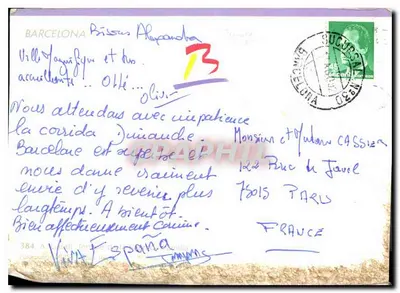 BARCELONA
Bisous Alexandra
Ville magnifique et très
accueillante.. Olté..
Olivier
B
SUCURSAL Nº 30
BARCELONA
Nous attendons avec impatience
la corrida Dimanche.
Barcelone est superbe et
nous donne vraiment
envie d'y revenir plus
longtemps. A bientôt.
Bien affectueusement
Viva España
Monsieur et Madame CASSIER
122 Rue de Javel
75015 PARIS
FRANCE
384